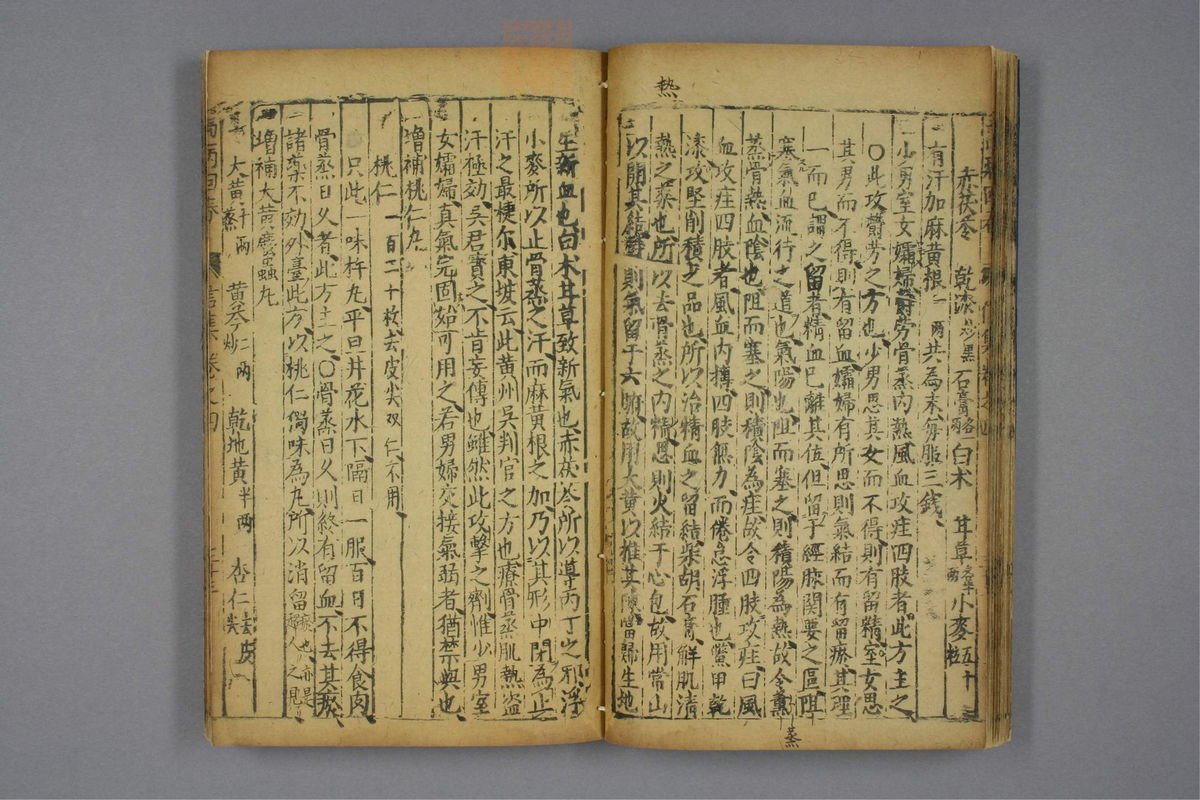 熱
赤茯苓 乾漆炒黑 石膏 白术 甘草 小麥五十粒
有汗加麻黃根一兩共為末每服三錢
小男室女孀婦欝勞骨蒸內熱風血攻疰四肢者此方主之
○此攻欝勞之方也少男思其女而不得則有留精室女思
其男而不得則有留血孀婦有所思則氣結而有留瘀其理
一而已謂之留者精血已離其位但留于經脉關要之區阻
塞氣血流行之道也氣陽也阻而塞之則積陽為熱故令薰
蒸
蒸骨熱血陰也阻而塞之則積陰為疰故令四肢攻疰曰風
血攻疰四肢者風血內摶四肢無力而倦怠浮腫也鱉甲乾
漆攻堅削積之品也所以治精血之留結柴胡石膏解肌清
熱之藥也所以去骨蒸之內精思則火結于心包故用常山
以開其結欝則氣留于六腑故用大黃以推其陳當歸生地
生新血也白术甘草致新氣也赤茯苓所以導丙丁之邪浮
小麥所以止骨蒸之汗而麻黃根之加乃以其形中閉為止
汗之最梗尔東坡云此黃州吳判官之方也療骨蒸肌熱盜
汗極効吳君寶之不肯妄傳也雖然此攻擊之劑惟少男室
女孀婦真氣完固茹可用之若男婦交接氣弱者猶禁與也
增補桃仁丸
桃仁一百二十枚去皮尖双仁不用
只此一味杵丸平旦井花水下隔日一服百日不得食肉
骨蒸日久者此方主之○骨蒸日久則終有留血不去其瘀
諸藥不効外臺此方以桃仁獨味為丸所以消留瘀也亦是超人之見
增補大黃䗪蟲丸
大黃蒸十兩 黃芩二兩炒 乾地黃半兩 杏仁去皮尖
言集卷之四